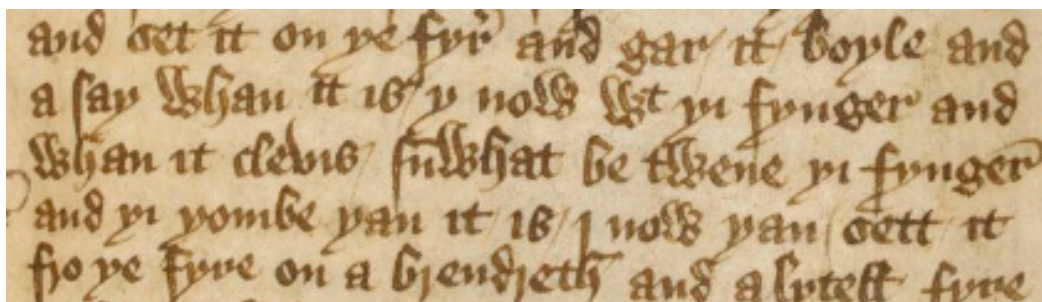 and set it on ye fyr and gar it boyle and
a say whan it is y now wt yi fynger and
whan it clevis sūwhat be twene yi fynger
and yi yombe yan it is j now yan sett it
fro ye fyre on a brendreth and a lytell fyre